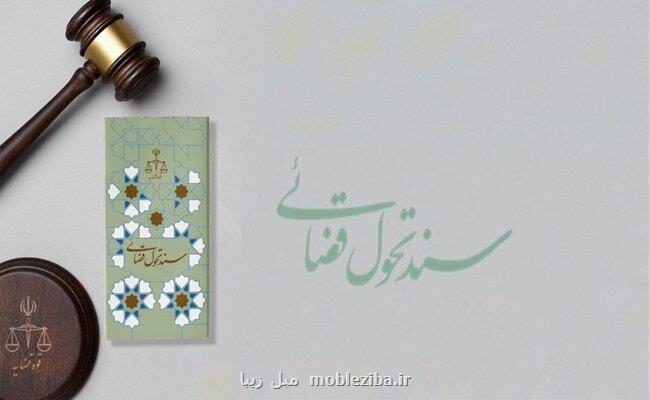 قوه قضاییه
سند تحول قضائی
سند تحول قضائی
قوه قضاییه
مبل زیبا mobleziba.ir